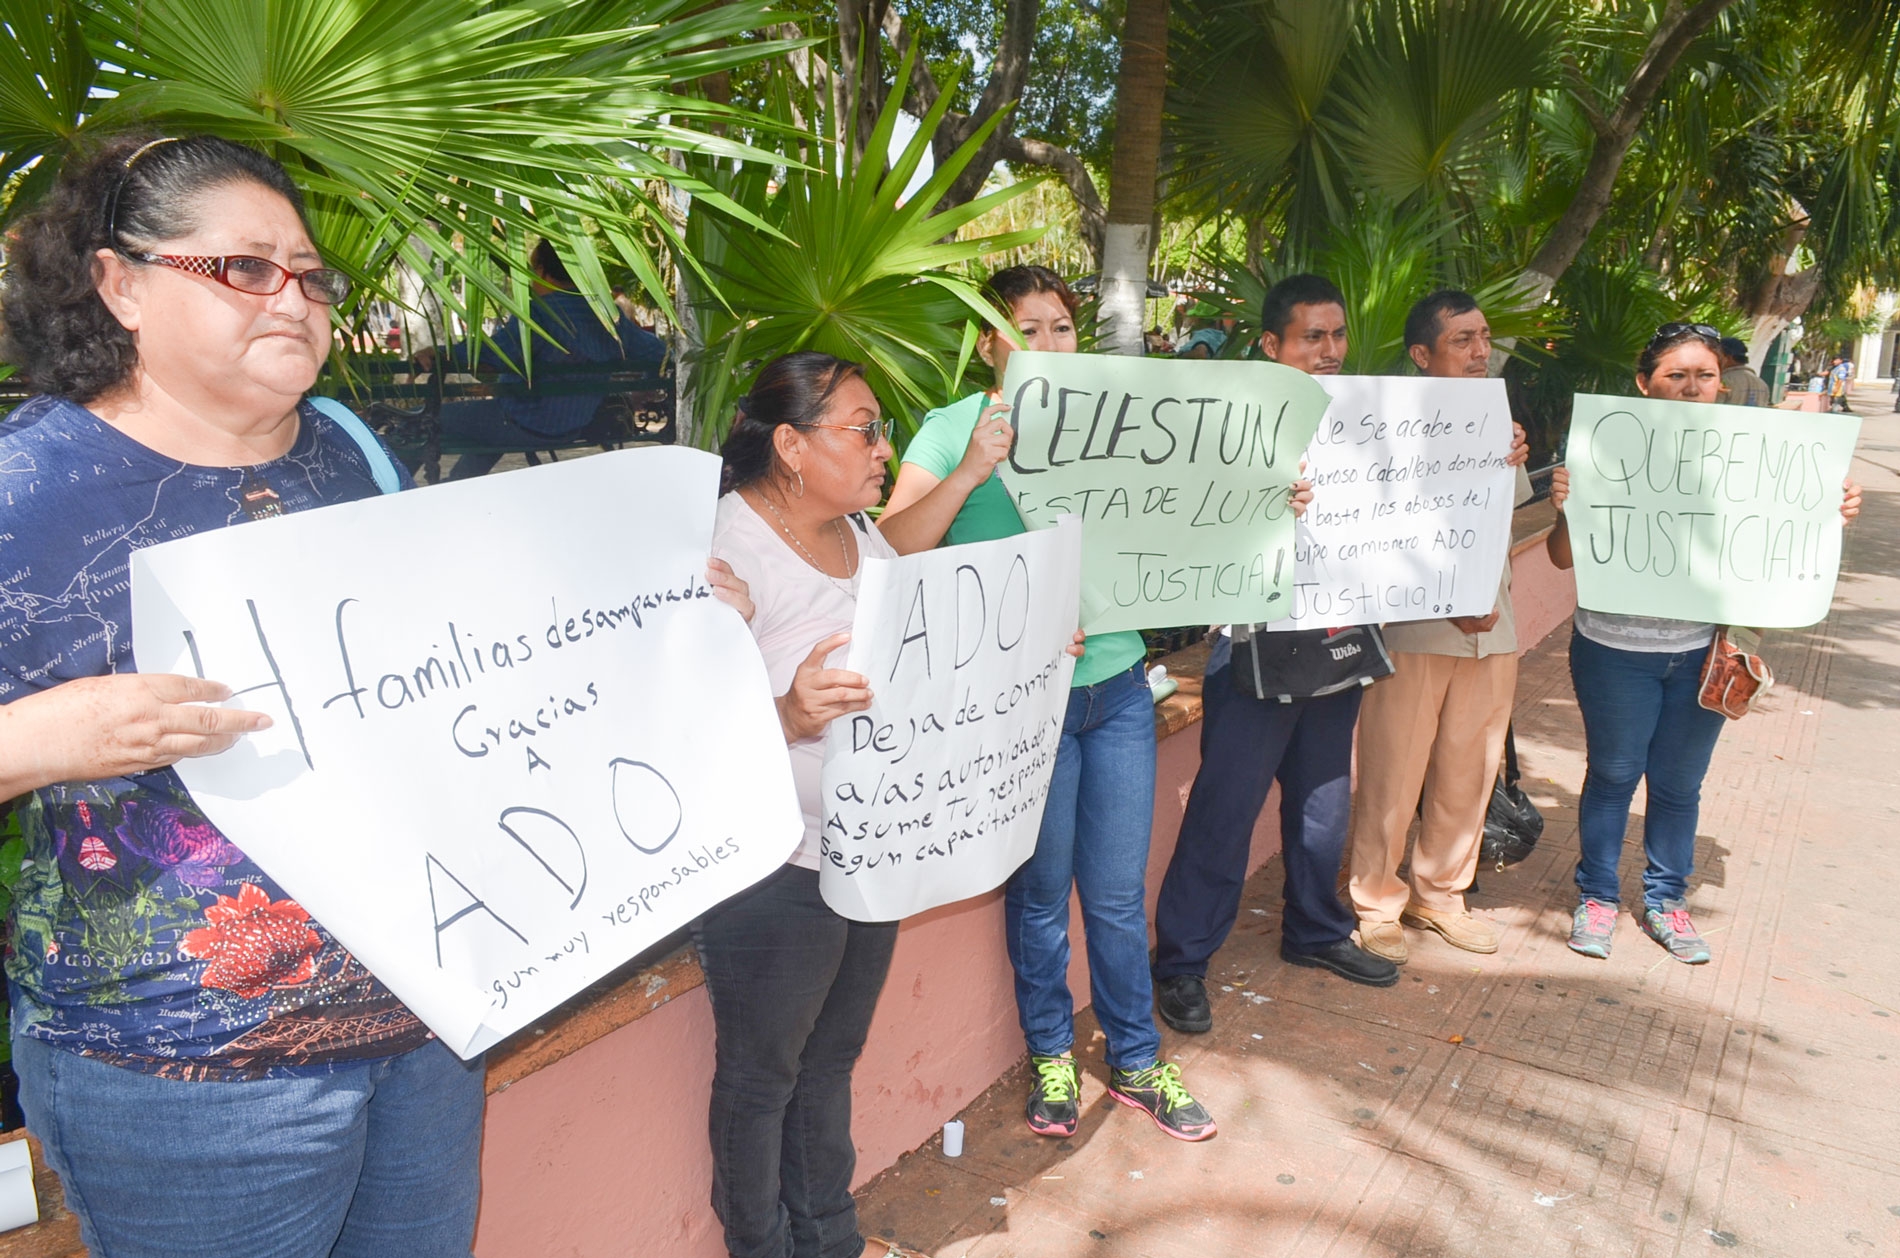 4 familias desamparadas
Gracias
A
ADO
segun muy responsables
ADO
Deja de comprar
a las autoridades y
Asume Tu resposabili
segun capacitas a tu
CELESTUN
ESTA DE LUTO
JUSTICIA!
Que se acabe el
poderoso Caballero don dine
basta los abusos del
pulpo camionero ADO
Justicia!!
QUEREMOS
JUSTICIA!!
Wilss